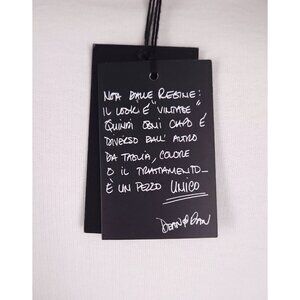 NOTA DALLE REGINE:
IL LOOK É "VINTAGE"
QUINDI OGNI CAPO É
DIVERSO DALL' ALTRO
DA TAGLIA, COLORE
O IL TRATTAMENTO_
É UN PEZZO UNICO
DEAN & DAN